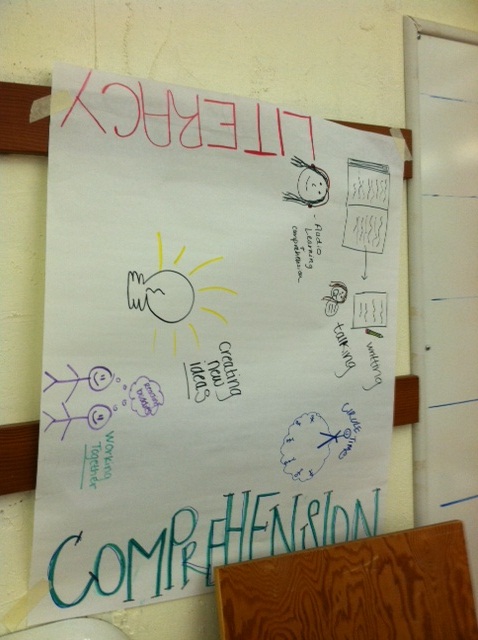 LITERACY
- Audio
Learning +
comprehension
talking
writting
creating
new
ideas
Working
Together
COMPREHENSION